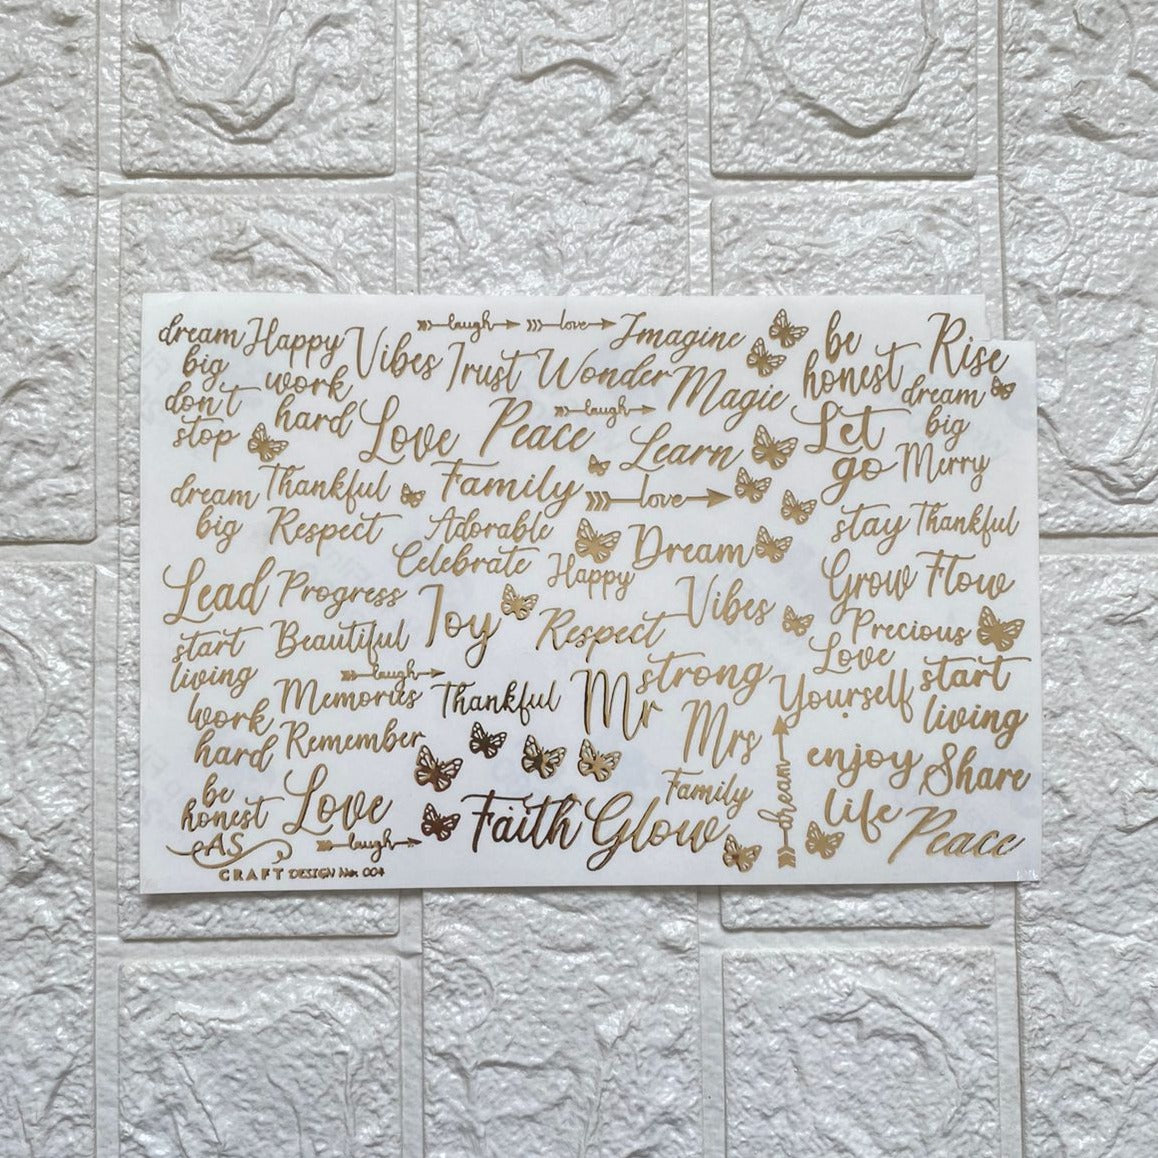 dream
big
Happy
Vibes
laugh
love
Imagine
be
honest
Rise
don't
stop
work
hard
Trust
Wonder
Magic
dream
big
Love
Peace
laugh
Learn
Let
go
Merry
dream
big
Thankful
Family
love
Respect
Adorable
stay
Thankful
Celebrate
Happy
Dream
Grow
Flow
Lead
Progress
Joy
Vibes
Precious
start
living
Beautiful
Respect
Love
Yourself
start
living
laugh
Memories
Thankful
Mr
strong
work
hard
Remember
Mrs
enjoy
life
Share
be
honest
Love
Family
dream
laugh
Faith
Glow
Peace
AS
CRAFT DESIGN No: 004